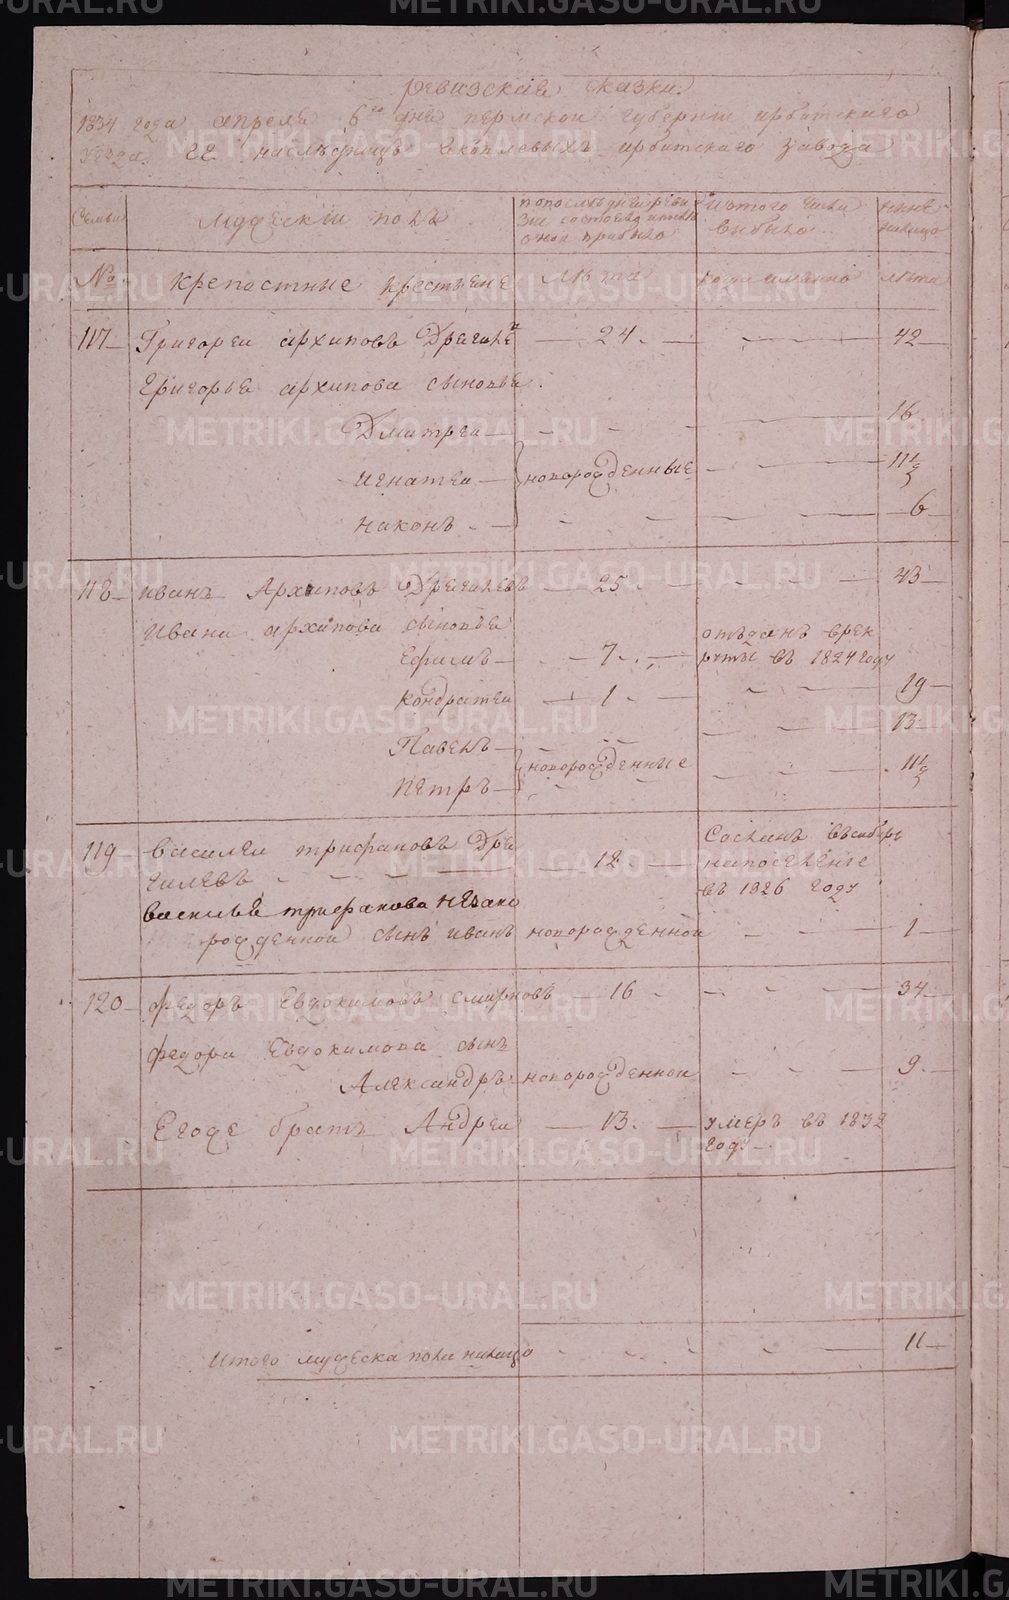 ревизские сказки
1834 года апреля 6го дня пермской губернии ирбитского
уезда гг наследницъ яковлевыхъ ирбитского завода
Семьи
мужескiй полъ
попоследнеи реви
зiи состояло ипосле
оной прибыло
изтого числа
выбыло
ныне
налицо
№
крепостные крестьяне
лета
когда именно
лета
117 Григореи архиповъ Дрягиле 24 42
Григорья архипова сыновья
Дмитреи 16
игнатеи новорожденные 11 1/2
никонъ 6
118 иванъ Архиповъ Дрягилевъ 25 43
Ивана архипова сыновья
Ефимъ 7 отъданъ врек
руты въ 1824 году
кондратеи 1 19
Павелъ 13
новорожденные
Петръ 11 1/2
119 василеи трифановъ Дря
гилевъ 12 Сосланъ всибирь
напоселенiе
въ 1826 году
василья трифанова незако
рожденной сынъ иванъ новорожденной 1
120 федоръ Евдокимовъ смирновъ 16 34
федора Евдокимова сынъ
Александръ новорожденной 9
Егоже братъ Андреи 13 умеръ въ 1832
году
Итого мужеска пола налицо 11
METRIKI.GASO-URAL.RU